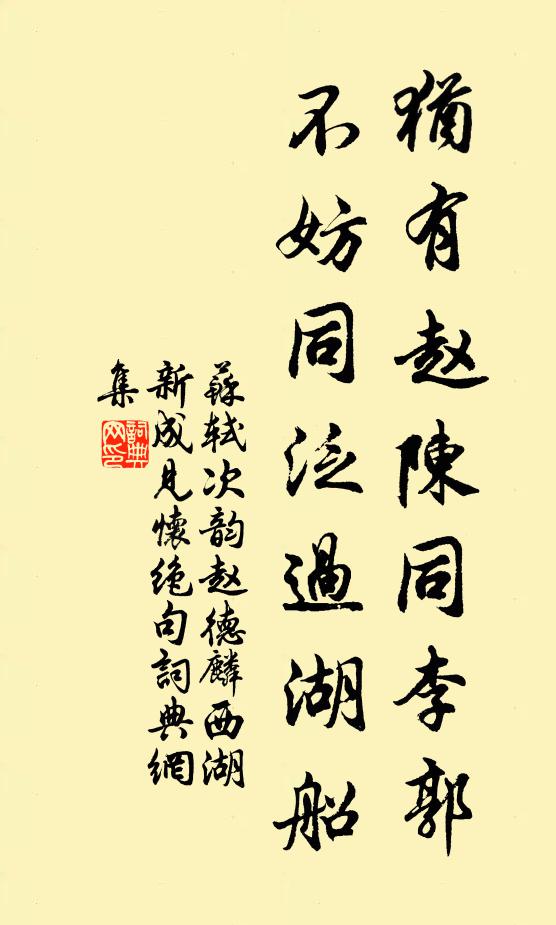 猶有趙陳同李郭
不妨同泛過湖船
蘇軾次韵趙德麟西湖
新成見懷絶句詞典網
集
詞典网印